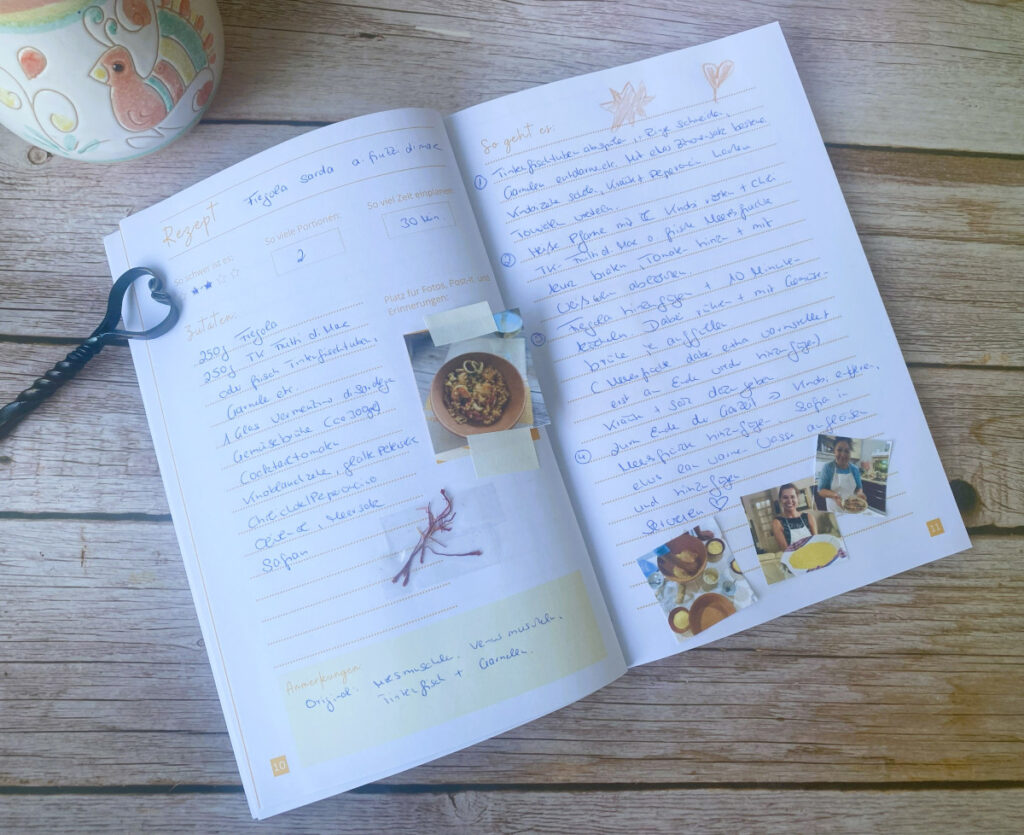 Rezept Fregola sarda a. frutti di mare
So schwer ist es:
So viele Portionen:
2
So viel Zeit einplanen:
30 Min.
Zutaten:
250g Fregola
250g TK Frutti d. Mare
oder frisch Tintenfischtuben,
Garnele etc.
1 Glas Vermentino di Sardegna
Gemüsebrühe
Cocktailtomaten
Knoblauchzehe, glatte Petersilie
Chilischote/Peperoncino
Oliven-Öl, Meersalz
Safran
Platz für Fotos, Post-It und
Erinnerungen:
Anmerkungen:
Original: Miesmuscheln, Venusmuscheln,
Tintenfisch + Garnelen.
10
So geht es:
1 Tintenfischtuben abspülen, in Ringe schneiden,
Garnelen entdarmen etc. Mit etwas Zitronensaft
Knobizehe schälen, Kräuter, Peperoncini hacken
Tomaten vierteln.
2 Heiße Pfanne mit Öl Knobi rösten + Chili
TK-Frutti d. Mare o frische Meeresfrüchte
kurz braten, Tomate hinzu + mit
Weißwein ablöschen.
3 Fregola hinzufügen + 10 Minuten
köcheln. Dabei rühren + mit Gemüse-
brühe je auffüllen.
(Meeresfrüchte dabei extra warmstellen
erst am Ende wieder hinzufügen)
Kräuter + Salz dazu geben
4 Zum Ende der Garzeit → Knobi entfernen,
Meeresfrüchte hinzufügen. Safran in
etwas warmen Wasser auflösen
und hinzufügen
Servieren ♡
11